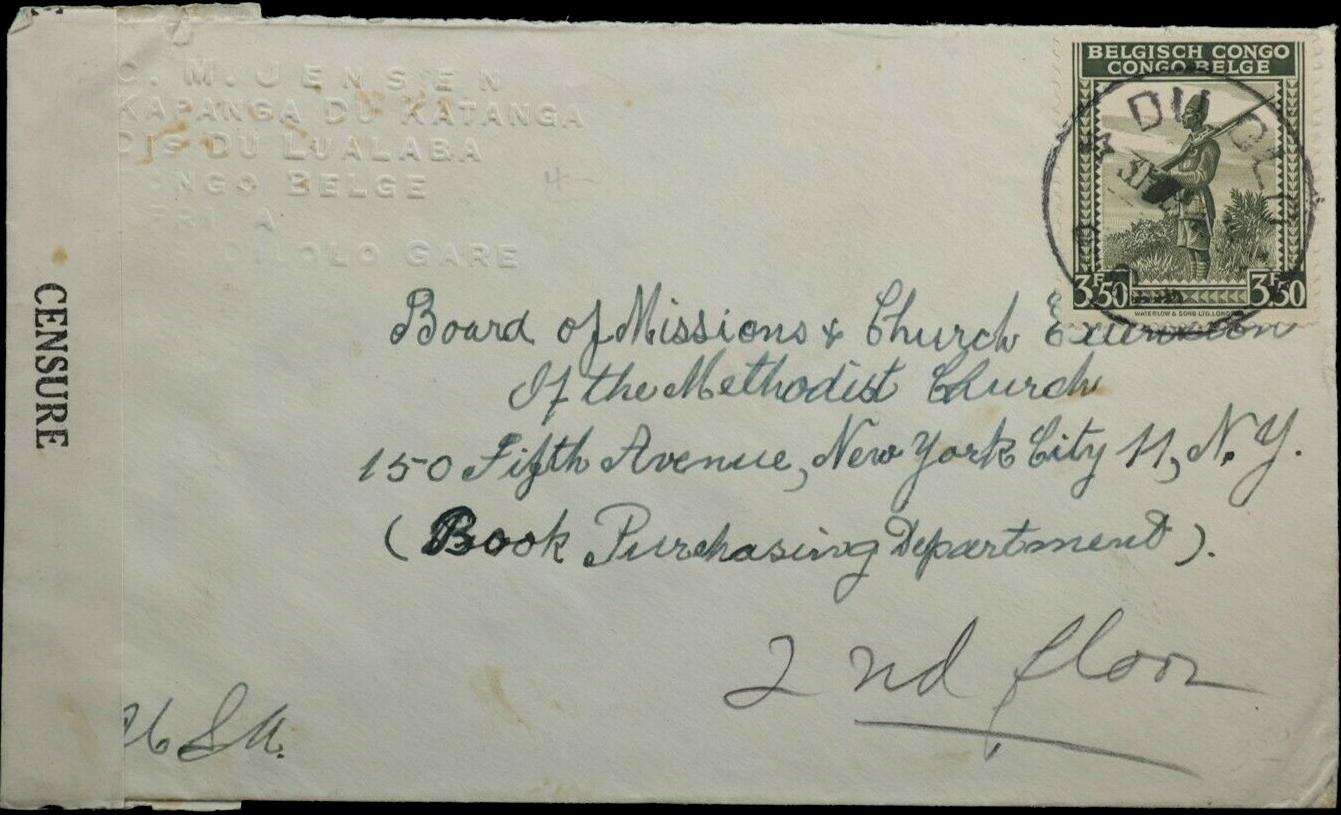 C. M. JENSEN
KAPANGA DU KATANGA
DIS DU LUALABA
CONGO BELGE
DILOLO GARE
CENSURE
BELGISCH CONGO
CONGO BELGE
DU
3F50
3F50
WATERLOW & SONS LTD. LONDON
Board of Missions & Church
Of the Methodist Church
150 Fifth Avenue, New York City 11, N.Y.
(Book Purchasing Department).
2nd floor
USA.